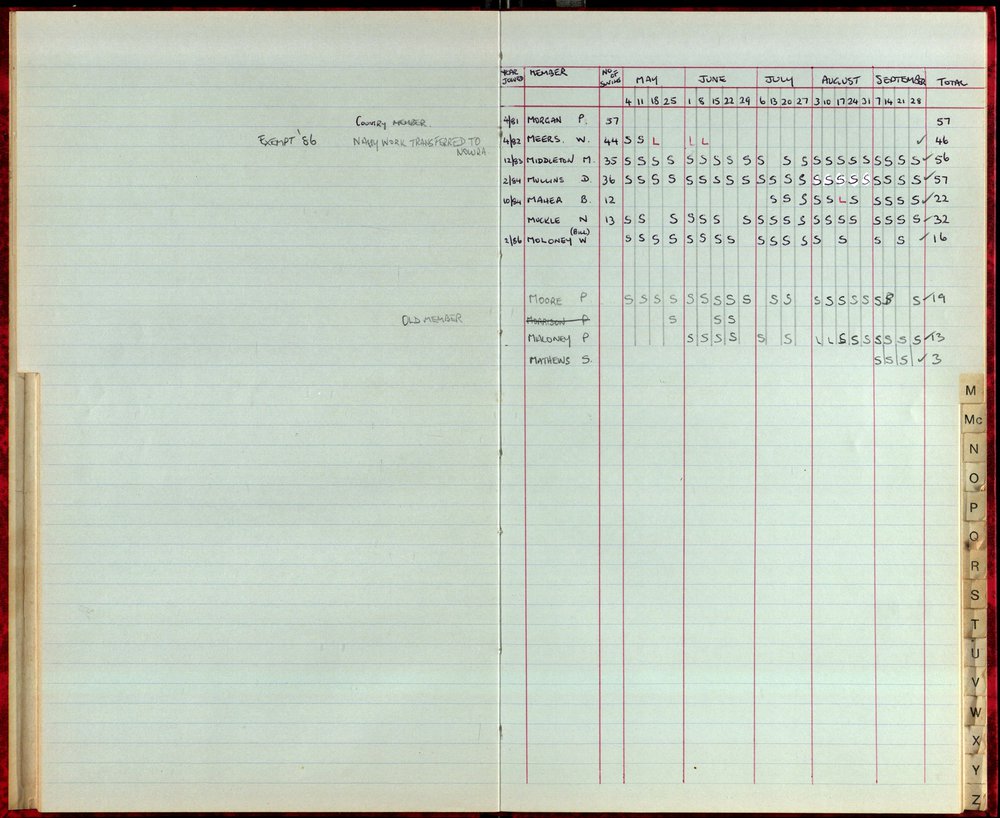 YEAR JOINED MEMBER NO OF SWIMS MAY JUNE JULY AUGUST SEPTEMBER TOTAL
4 11 18 25 1 8 15 22 29 6 13 20 27 3 10 17 24 31 7 14 21 28
COUNTRY MEMBER 4/81 MORGAN P. 57 57
EXEMPT '86 NAVY WORK TRANSFERED TO NOWRA 4/82 MEERS. W. 44 S S L L L ✓ 46
12/83 MIDDLETON M. 35 S S S S S S S S S S S S S S S S S S S S S ✓ 56
2/84 MULLINS D. 36 S S S S S S S S S S S S S S S S S S S S S S ✓ 57
10/84 MAHER B. 12 S S S S S L S S S S S ✓ 22
MUCKLE N 13 S S S S S S S S S S S S S S S S S S S ✓ 32
2/86 MOLONEY W (BILL) S S S S S S S S S S S S S S S S ✓ 16
MOORE P S S S S S S S S S S S S S S S S S S ✓ 19
OLD MEMBER MORRISON P S S S
MALONEY P S S S S S S L L S S S S S S S ✓ 13
MATHEWS S. S S S ✓ 3
M
Mc
N
O
P
Q
R
S
T
U
V
W
X
Y
Z